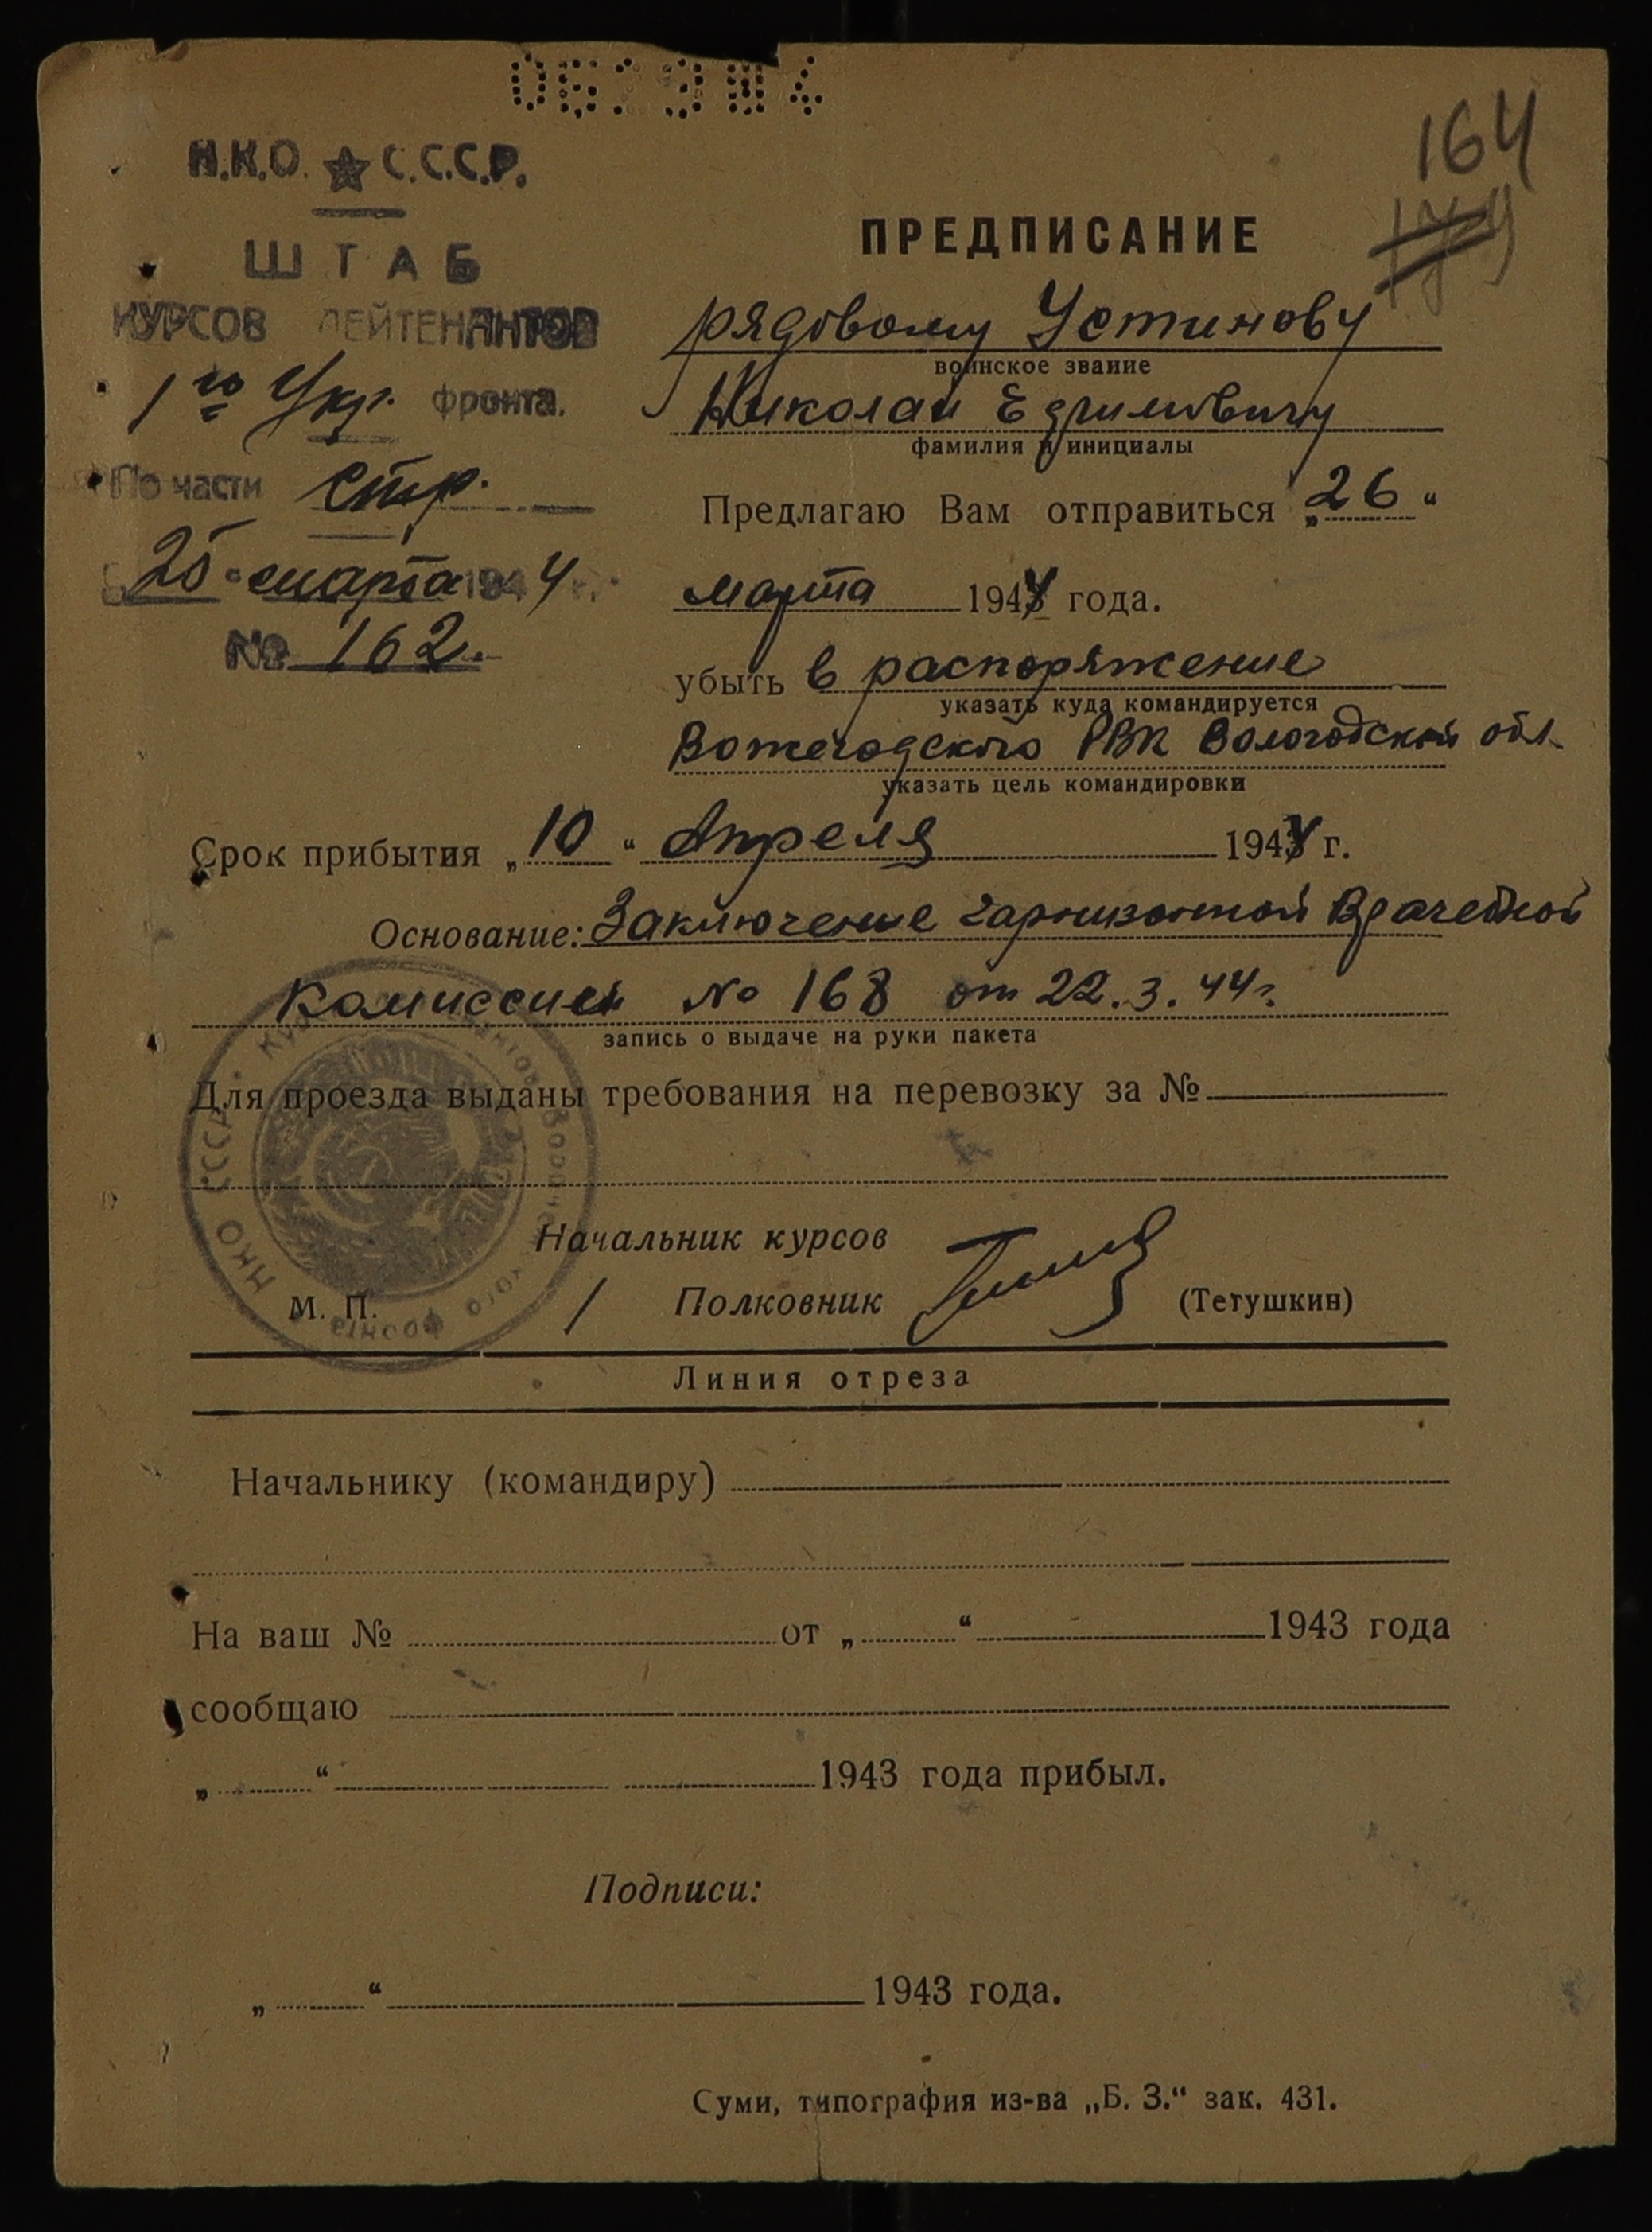 164
Н.К.О. С.С.С.Р.
ШТАБ
КУРСОВ ЛЕЙТЕНАНТОВ
1го Укр. фронта.
По части стр.
25 марта 1944 г.
№ 162.
ПРЕДПИСАНИЕ
рядовому Устинову
воинское звание
Николаю
фамилия и инициалы
Предлагаю Вам отправиться „26“
марта 1944 года.
убыть в распоряжение
указать куда командируется
Вожегодского РВК Вологодской обл.
указать цель командировки
Срок прибытия „10“ Апреля 1944 г.
Основание: Заключение гарнизонной Врачебной
Комиссией № 168 от 22.3.44г.
запись о выдаче на руки пакета
Для проезда выданы требования на перевозку за №
НКО СССР фронта
Начальник курсов
М. П. / Полковник (Тетушкин)
Линия отреза
Начальнику (командиру)
На ваш № от „ “ 1943 года
сообщаю
„ “ 1943 года прибыл.
Подписи:
„ “ 1943 года.
Суми, типография из-ва „Б. З.“ зак. 431.